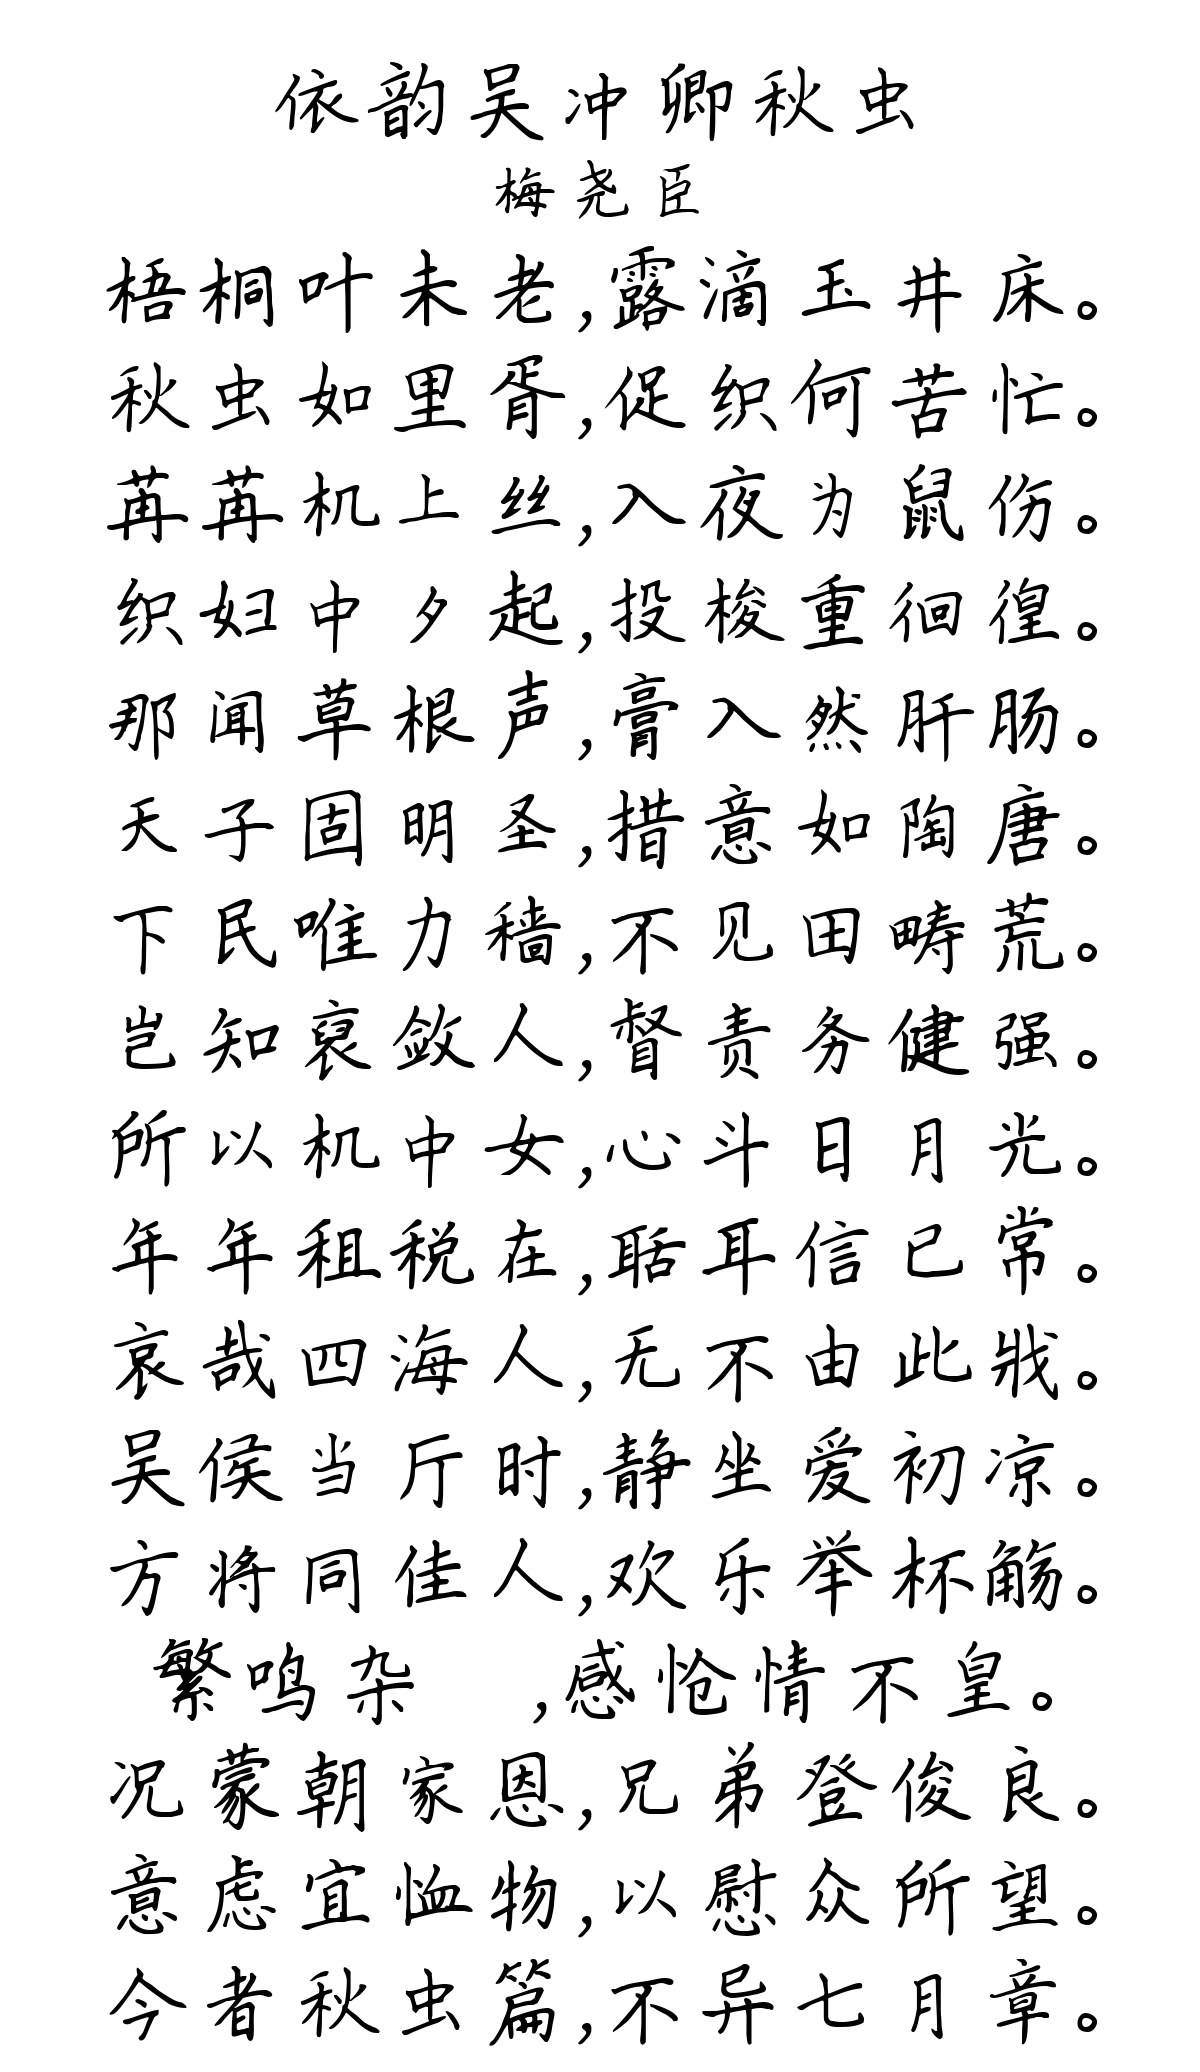 依韵吴冲卿秋虫
梅尧臣
梧桐叶未老,露滴玉井床。
秋虫如里胥,促织何苦忙。
苒苒机上丝,入夜为鼠伤。
织妇中夕起,投梭重徊徨。
那闻草根声,膏入然肝肠。
天子固明圣,措意如陶唐。
下民唯力穑,不见田畴荒。
岂知裒敛人,督责务健强。
所以机中女,心斗日月光。
年年租税在,聒耳信已常。
哀哉四海人,无不由此戕。
吴侯当斤时,静坐爱初凉。
方将同佳人,欢乐举杯觞。
繁鸣杂 ,感怆情不皇。
况蒙朝家恩,兄弟登俊良。
意虑宜恤物,以慰众所望。
今者秋虫篇,不异七月章。